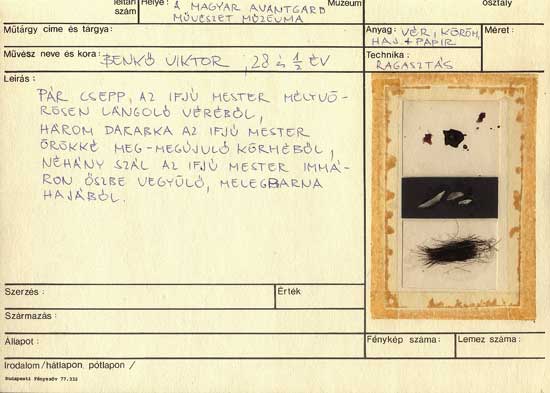 leltári szám
Helye: A MAGYAR AVANTGARD MŰVÉSZET MÚZEUMA
Múzeum
osztály
Műtárgy címe és tárgya:
Anyag: VÉR, KÖRÖM, HAJ + PAPÍR
Méret:
Művész neve és kora: BENKŐ VIKTOR, 28 és 1/2 ÉV
Technika: RAGASZTÁS
Leírás:
PÁR CSEPP, AZ IFJÚ MESTER MÉLYVÖ-
RÖSEN LÁNGOLÓ VÉRÉBŐL,
HÁROM DARABKA AZ IFJÚ MESTER
ÖRÖKKÉ MEG-MEGÚJULÓ KÖRMÉBŐL,
NÉHÁNY SZÁL AZ IFJÚ MESTER IMMÁ-
RON ŐSZBE VEGYÜLŐ, MELEGBARNA
HAJÁBÓL.
Szerzés:
Érték
Származás:
Állapot:
Fénykép száma:
Lemez száma:
Irodalom/hátlapon, pótlapon /
Budapesti Fénymásv 77.332